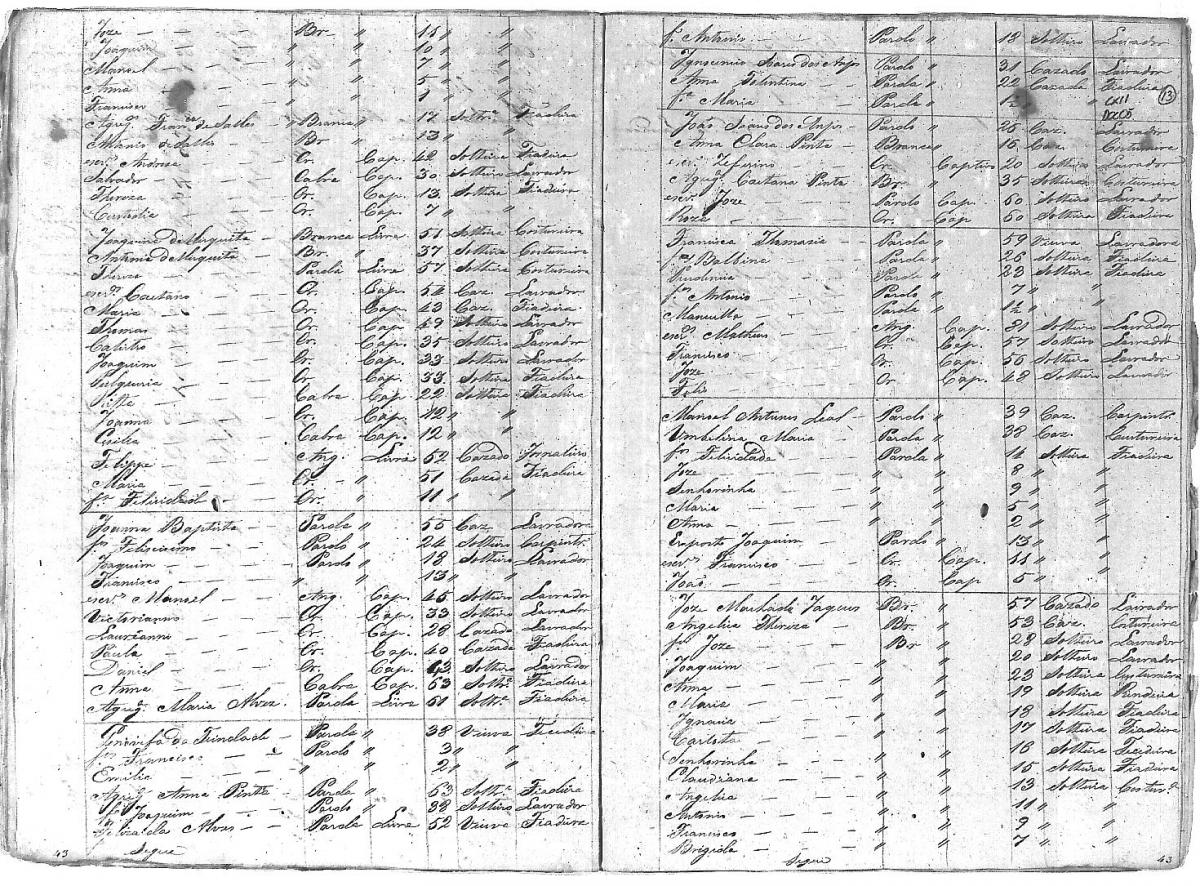 Joze — Br. " 15 " "
Joaquim — " " 10 " "
Manoel — " " 7 " "
Anna — " " 5 " "
Francisco — " " 1 " "
Agreg. Fran.ca de Salles — Branca " 17 Solt.ra Fiadeira
Maria de Salles — Br " 13 " "
escr. Andreza — Cr. Cap. 42 Solteira Fiadeira
Salvador — Cabra Cap. 30 Solteiro Lavrador
Thereza — Cr. Cap. 13 Solteira Fiadeira
Custodia — Cr. Cap. 7 " "
Joaquina de Mesquita — Branca Livre 51 Solteira Costureira
Antonia de Mesquita — Br. " 37 Solteira Costureira
Thereza — Parda Livre 57 Solteira Costureira
escr. Caetano — Cr. Cap. 54 Caz. Lavrador
Maria — Cr. Cap. 43 Caz. Fiadeira
Thomas — Cr. Cap. 59 Solteiro Lavrador
Calisto — Cr. Cap. 35 Solteiro Lavrador
Joaquim — Cr. Cap. 33 Solteiro Lavrador
Cr. Cap. 33 Solteira Fiadeira
Cabra Cap. 22 Solteira Fiadeira
Joanna — Cr. Cap. 12 " "
Cecilia — Cabra Cap. 12 " "
Felippe — Ang. Livre 52 Cazado Jornaleiro
Maria — Cr. " 51 Cazada Fiadeira
f.a Felicidade Cr. " 11 " "
Joanna Baptista — Parda " 55 Caz. Lavradora
f.o Felicissimo — Pardo " 24 Solteiro Carpintr.
Joaquim — Pardo " 18 Solteiro Lavrador
Francisco — " " 13 " "
escr. Manoel — Ang. Cap. 45 Solteiro Lavrador
Victorianno — Cr. Cap. 33 Solteiro Lavrador
Laureanno — Cr. Cap. 28 Cazado Lavrador
Paula — Cr. Cap. 40 Cazada Fiadeira
Daniel — Cr. Cap. 43 Solteiro Lavrador
Anna — Cabra Cap. 53 Solt.a Fiadeira
Agreg. Maria Alvez. Parda Livre 51 Solt.a Fiadeira
da Trindade — Parda " 38 Viuva Fiadeira
f.o Francisco — Pardo " 3 " "
Emilia — " " 2 " "
Agreg. Anna Pinta — Parda " 53 Solt.a Fiadeira
f.o Joaquim — Pardo " 38 Solteiro Lavrador
da Alves — Parda Livre 52 Viuva Fiadeira
43 Segue
f.o Antonio — Pardo " 18 Solteiro Lavrador
Ignocencio Soares dos Anjos Pardo " 31 Cazado Lavrador
Anna Felentina — Parda " 22 Cazada Fiadeira
f.a Maria — Parda " 1½ " "
13
João Soares dos Anjos — Pardo " 25 Caz. Lavrador
Anna Clara Pinta — Branca " 15 Caz. Costureira
escr. Zeferino — Cr. Captivo 20 Solteiro Lavrador
Agreg. Caetana Pinta Br. " 35 Solteira Costureira
escr. Joze — Pardo Cap. 50 Solteiro Lavrador
Roza — Cr. Cap 50 Solteira Fiadeira
Francisca Thomazia — Parda " 59 Viuva Lavradora
f.as Balbina — Parda " 26 Solteira Fiadeira
Prudencia — Parda " 23 Solteira Fiadeira
f.o Antonio — Pardo " 7 " "
Manoella — Parda " 1½ " "
escr. Matheus — Ang. Cap. 81 Solteiro Lavrador
Francisco — Cr. Cap. 57 Solteiro Lavrador
Joze — Cr. Cap. 55 Solteiro Lavrador
Felis — Cr. Cap. 48 Solteiro Lavrador
Manoel Antunes Leal — Pardo " 39 Caz. Carpintr.
Umbelina Maria — Parda " 38 Caz. Custureira
f.a Felicidade — Parda " 14 Solteira Fiadeira
Joze — " " 8 " "
Senhorinha — " " 9 " "
Maria — " " 5 " "
Anna — " " 2 " "
Exposto Joaquim — Pardo " 13 " "
escr. Francisco — Cr. Cap. 11 " "
João — Cr. Cap 5 " "
Joze Machado Jaques Br. " 57 Cazado Lavrador
Angelica Thereza — Br. " 53 Caz. Costureira
f.o Joze — Br " 28 Solteiro Lavrador
Joaquim — " " 20 Solteiro Lavrador
Anna — " " 23 Solteira Custureira
Maria — " " 19 Solteira Rendeira
Ignacia — " " 18 Solteira Fiadeira
Carlota — " " 17 Solteira Fiadeira
Senhorinha — " " 16 Solteira Fiadeira
Claudiana — " " 15 Solteira Fiadeira
Angelica — " " 13 Solteira Costur.a
Antonio — " " 11 " "
Francisco — " " 9 " "
Brigida — " " 7 " "
Segue 43